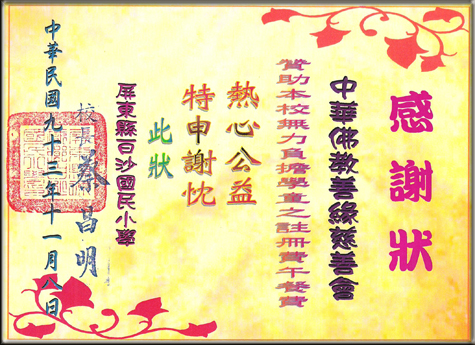 感謝狀
中華佛教善緣慈善會
贊助本校無力負擔學童之註冊費午餐費
熱心公益
特申謝忱
此狀
屏東縣白沙國民小學
校長 蔡昌明
中華民國九十三年十一月八日